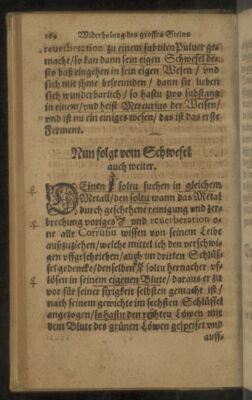 184 Widerholung des grossen Steins
reuerberation zu einem subtilen Puluer ge-
macht/so kan dann sein eigen Schwefel de-
sto baß eingehen in sein eigen Wesen/ vnd
sich mit ihme befreunden/ dann sie lieben
sich wunderbarlich/ so hastu zwo substantz
in einem/vnd heist Mercurius der Weisen/
vnd ist nu ein einiges wesen/ das ist das erste
Ferment.
Nun folgt vom Schwefel
auch weiter.
DEinen soltu suchen in gleichem
Metall/den soltu wann das Metal
durch geschehene reinigung vnd zer-
brechung voriges vnd reuerberation o-
ne alle Corrosiu wissen von seinem Leibe
außzuziehen/welche mittel ich den verschwi-
gen vffgeschrieben/auch im dritten Schlüs-
sel gedencke/denselben soltu hernacher vf-
lösen in seinem eigenen Blute/ daraus er zu
vor für seiner fixigkeit selbsten gemacht ist/
nach seinem gewichte im sechsten Schlüssel
angezogen/so hastu den rechten Löwen mit
dem Blute des grünen Löwen gespeiset vnd
auff-